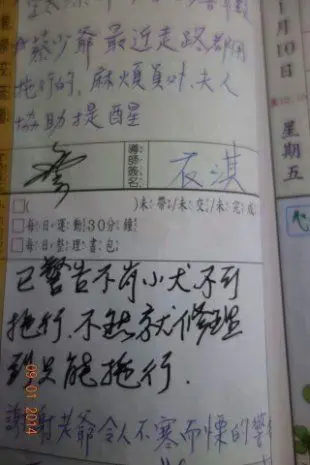 蔡少爺最近走路都用
拖行的,麻煩員外、夫人
協助提醒
導師簽名
衣淇
□( )未帶/未交/未完成
□每日運動30分鐘
□每日整理書包
已警告不肖小犬不可
拖行.不然就修理
到只能拖行.
謝謝老爺令人不寒而慄的警
月
10
日
星期五
09/01 2014